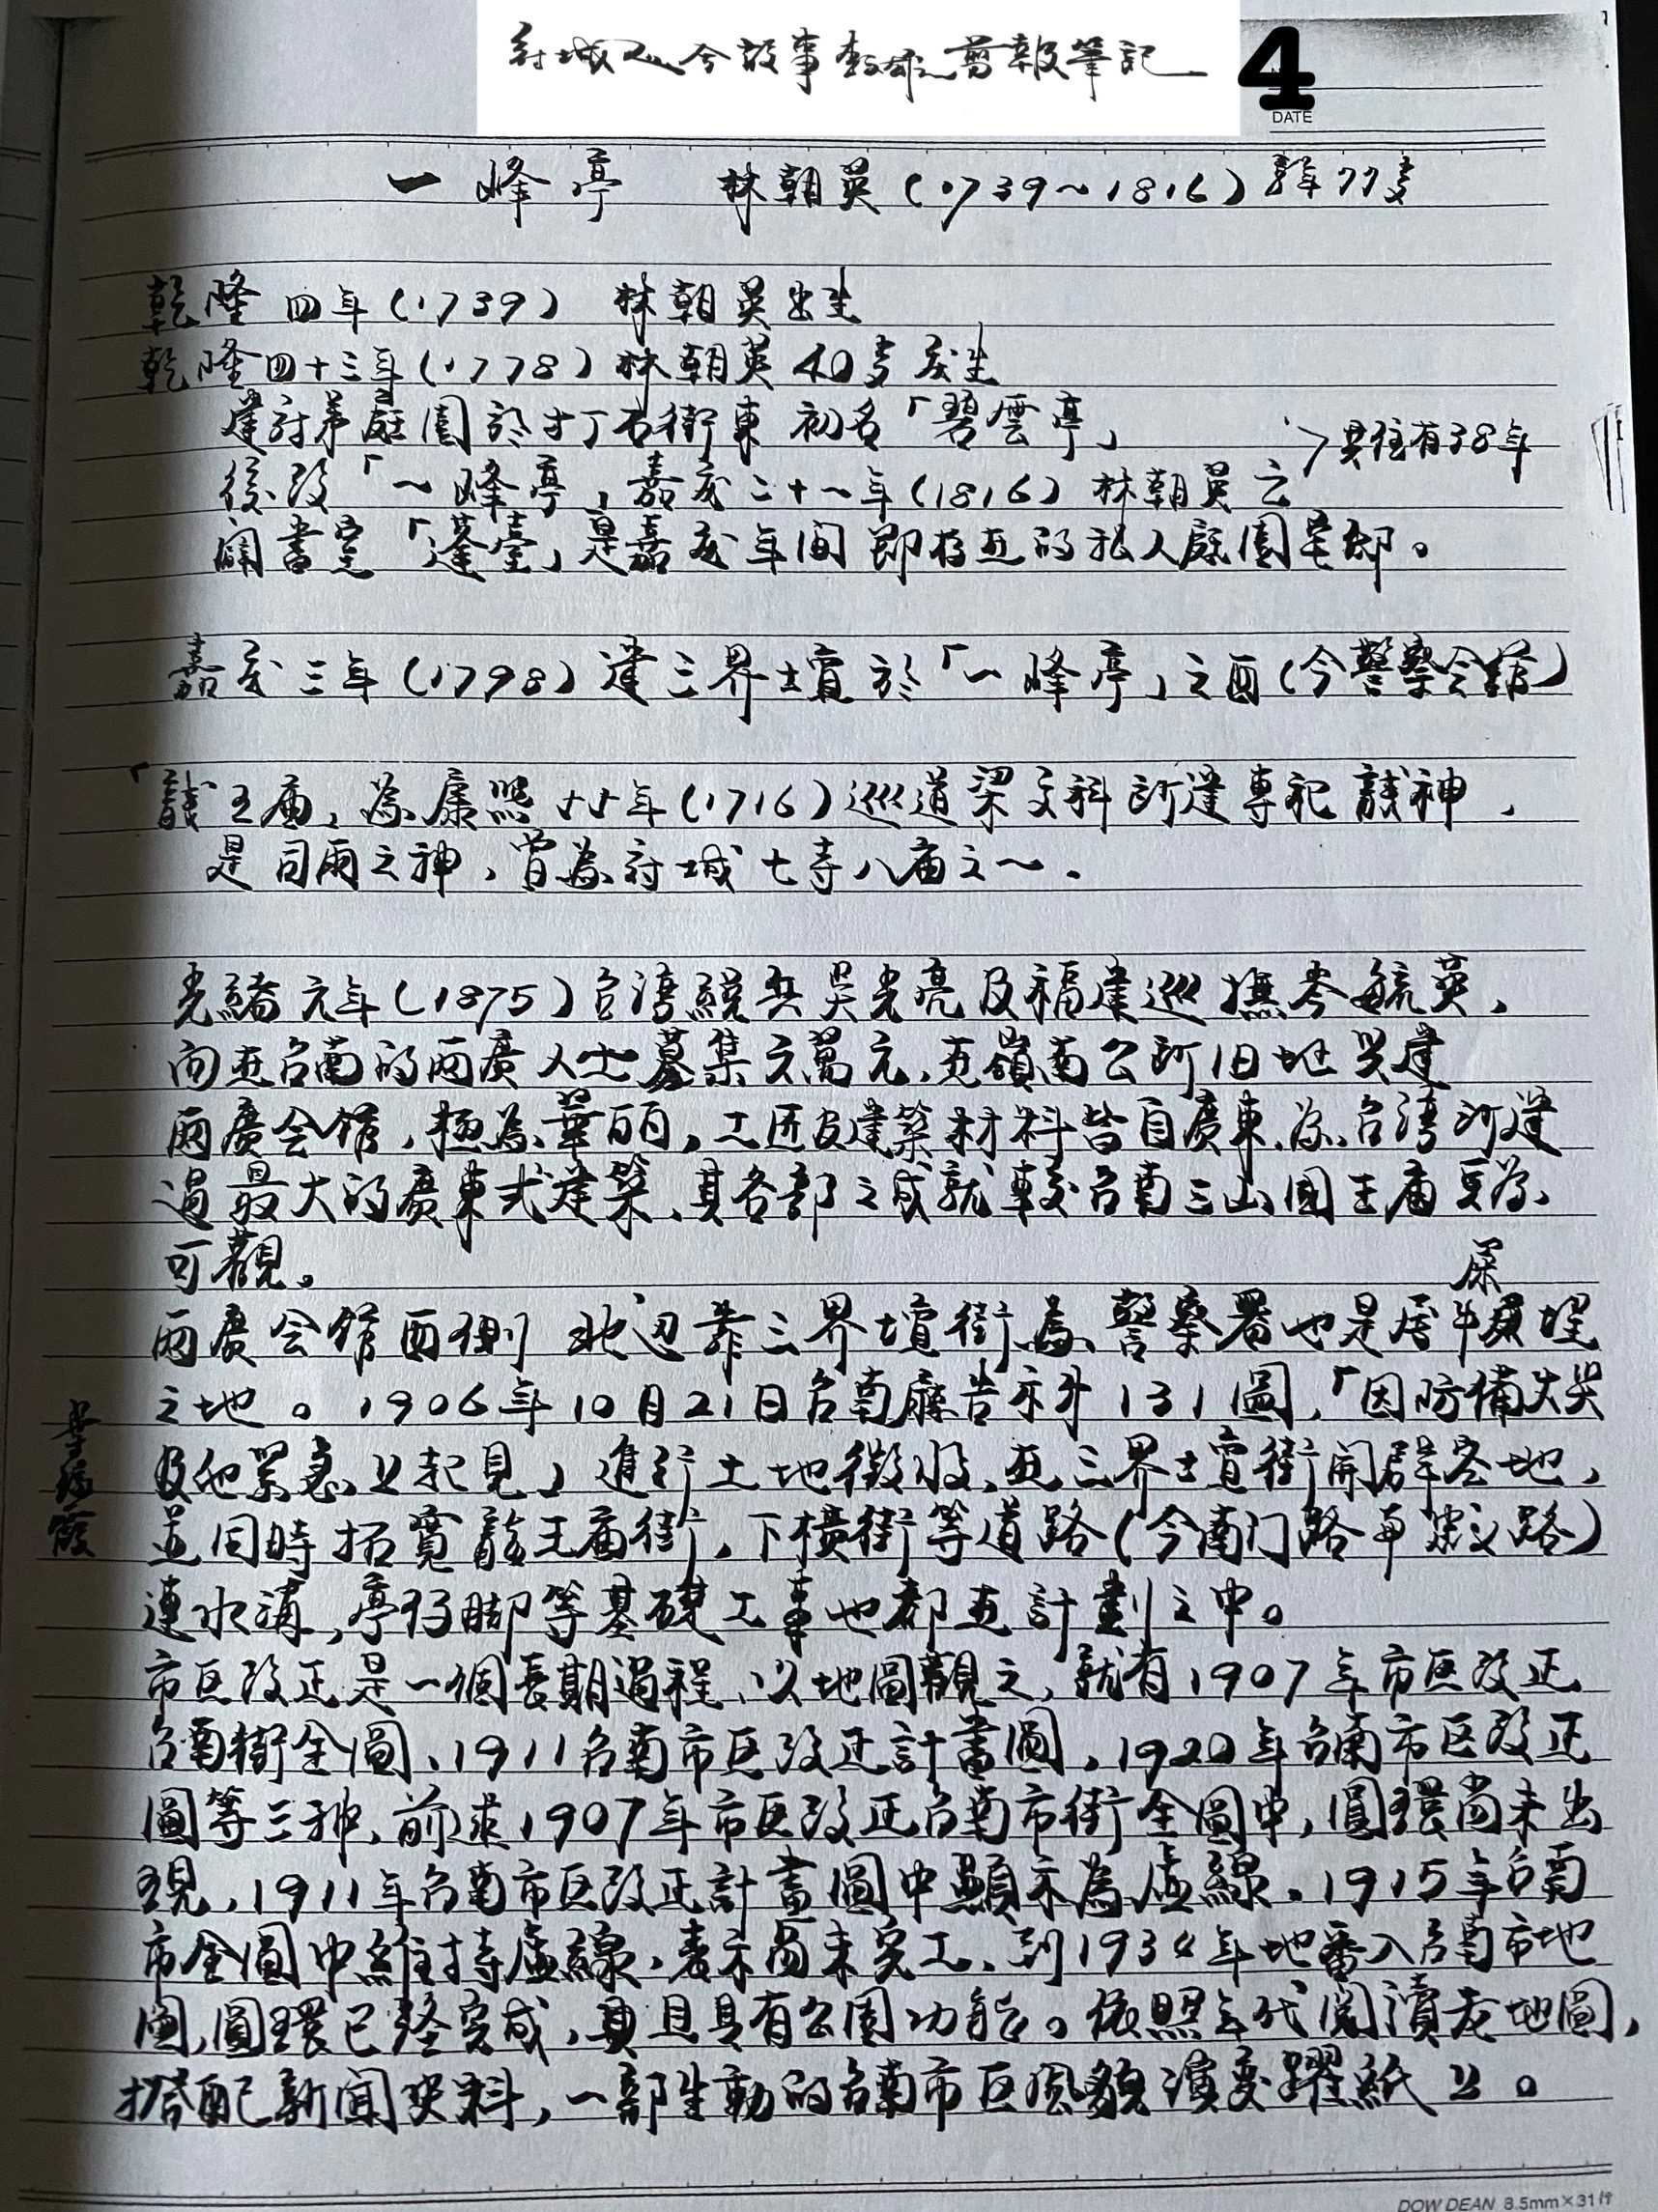 府城 今故事 剪報筆記 4
DATE
一峰亭 林朝英(1739~1816) 享年77歲
乾隆四年(1739) 林朝英出生
乾隆四十三年(1778) 林朝英40歲 生
建 庭園於打石街東 初名「碧雲亭」
>共住有38年
後改「一峰亭」嘉慶二十一年(1816) 林朝英亡
闢書室「蓬臺」是嘉慶年間即存在的私人庭園宅邸。
嘉慶三年(1798) 建三界壇於「一峰亭」之西(今警察会館)
「龍王廟」為康熙 年(1716)巡道梁文科所建專祀龍神,
是司雨之神、曾為府城七寺八廟之一。
光緒元年(1875)台湾總兵吴光亮及福建巡撫岑毓英,
向在台南的兩廣人士募集 萬元、在嶺南公所旧址興建
兩廣会館,極為華丽,工匠及建築材料皆自廣東、為台湾所建
過最大的廣東式建築、其各部之成就較台南三山國王廟更為
可觀。
尿
兩廣会館西側 北边靠三界壇街為警察署也是 埋
之地。1906年10月21日台南廳告示 131 圖,「因防備火災
及他緊急上起見」進行土地徵收、在三界壇街開闢空地,
葉瑞霞
並同時拓寬龍王廟街,下橫街等道路(今南门路 路)
連水溝,亭仔脚等基礎工事也都在計劃之中。
市区改正是一個長期過程、以地圖觀之,就有1907年市区改正
台南街全圖、1911台南市区改正計畫圖,1920年台南市区改正
圖等三种、前述1907年市区改正台南市街全圖中,圓環尚未出
現,1911年台南市区改正計畫圖中顯示為虛線。1915年台南
市全圖中維持虛線,表示尚未完工、到1934年地番入台南市地
圖,圓環已經完成,真且具有公園功能。依照年代閱讀老地圖,
搭配新聞史料,一部生動的台南市区風貌演变躍紙上。
DOW DEAN 8.5mm×31行